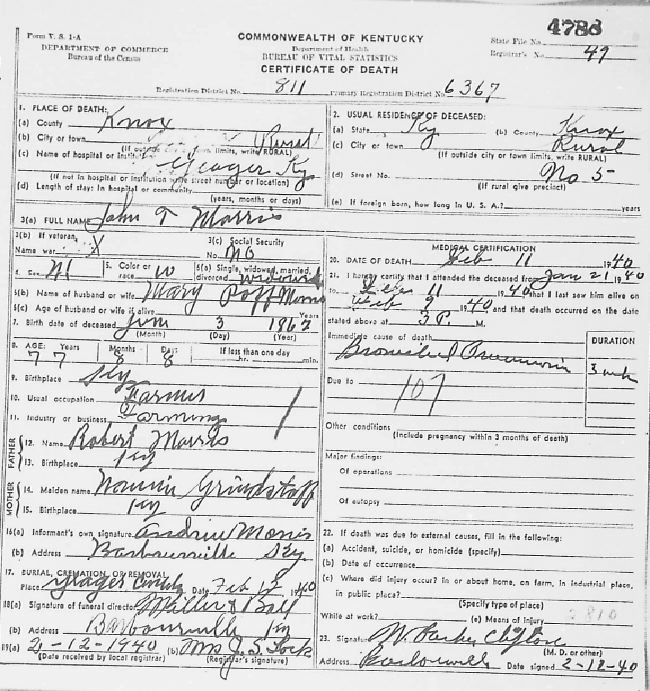 4786
Form V. S. 1-A
DEPARTMENT OF COMMERCE
Bureau of the Census
COMMONWEALTH OF KENTUCKY
Department of Health
BUREAU OF VITAL STATISTICS
CERTIFICATE OF DEATH
State File No.
Registrar's No. 49
Registration District No. 811 Primary Registration District No. 6367
1. PLACE OF DEATH:
(a) County Knox
(b) City or town Rural
(If outside city or town limits, write RURAL)
(c) Name of hospital or institution Yeager Ky
(If not in hospital or institution write street number or location)
(d) Length of stay: In hospital or community
(years, months or days)
2. USUAL RESIDENCE OF DECEASED:
(a) State Ky (b) County Knox
(c) City or town Rural
(If outside city or town limits, write RURAL)
(d) Street No. No 5
(If rural give precinct)
(e) If foreign born, how long in U. S. A.? years
3(a) FULL NAME John T Morris
3(b) If veteran,
Name war X
3(c) Social Security
No. NO
4. Sex M 5. Color or race W 6(a) Single, widowed, married, divorced Widowed
6(b) Name of husband or wife Mary Poff Morris
6(c) Age of husband or wife if alive Years
7. Birth date of deceased 3
(Month) (Day) (Year)
8. AGE: Years Months Days If less than one day
77 8 8 hr. min.
9. Birthplace Ky
10. Usual occupation Farmer
11. Industry or business Farming
FATHER
12. Name Robert Morris
13. Birthplace Ky
MOTHER
14. Maiden name Nannie Grindstaff
15. Birthplace Ky
16(a) Informant's own signature Andrew Morris
(b) Address Barbourville Ky
17. BURIAL, CREMATION OR REMOVAL
Place Yeager Date Feb 12 1940
18(a) Signature of funeral director Miller & Ball
(b) Address Barbourville Ky
19(a) 2-12-1940 (b) Mrs J. S. Lock
(Date received by local registrar) (Registrar's signature)
MEDICAL CERTIFICATION
20. DATE OF DEATH Feb 11 1940
21. I hereby certify that I attended the deceased from Jan 21 1940
to Feb 11 1940, that I last saw him alive on
Feb 9 1940 and that death occurred on the date
stated above at 3 P. M.
DURATION
Immediate cause of death
Bronchial Pneumonia 3 wk
Due to 107
Other conditions
(Include pregnancy within 3 months of death)
Major findings:
Of operations
Of autopsy
22. If death was due to external causes, fill in the following:
(a) Accident, suicide, or homicide (specify)
(b) Date of occurrence
(c) Where did injury occur? In or about home, on farm, in industrial place,
in public place?
(Specify type of place)
While at work? (e) Means of injury 2810
23. Signature W. Parker Clifton
(M. D. or other)
Address Date signed 2-12-40